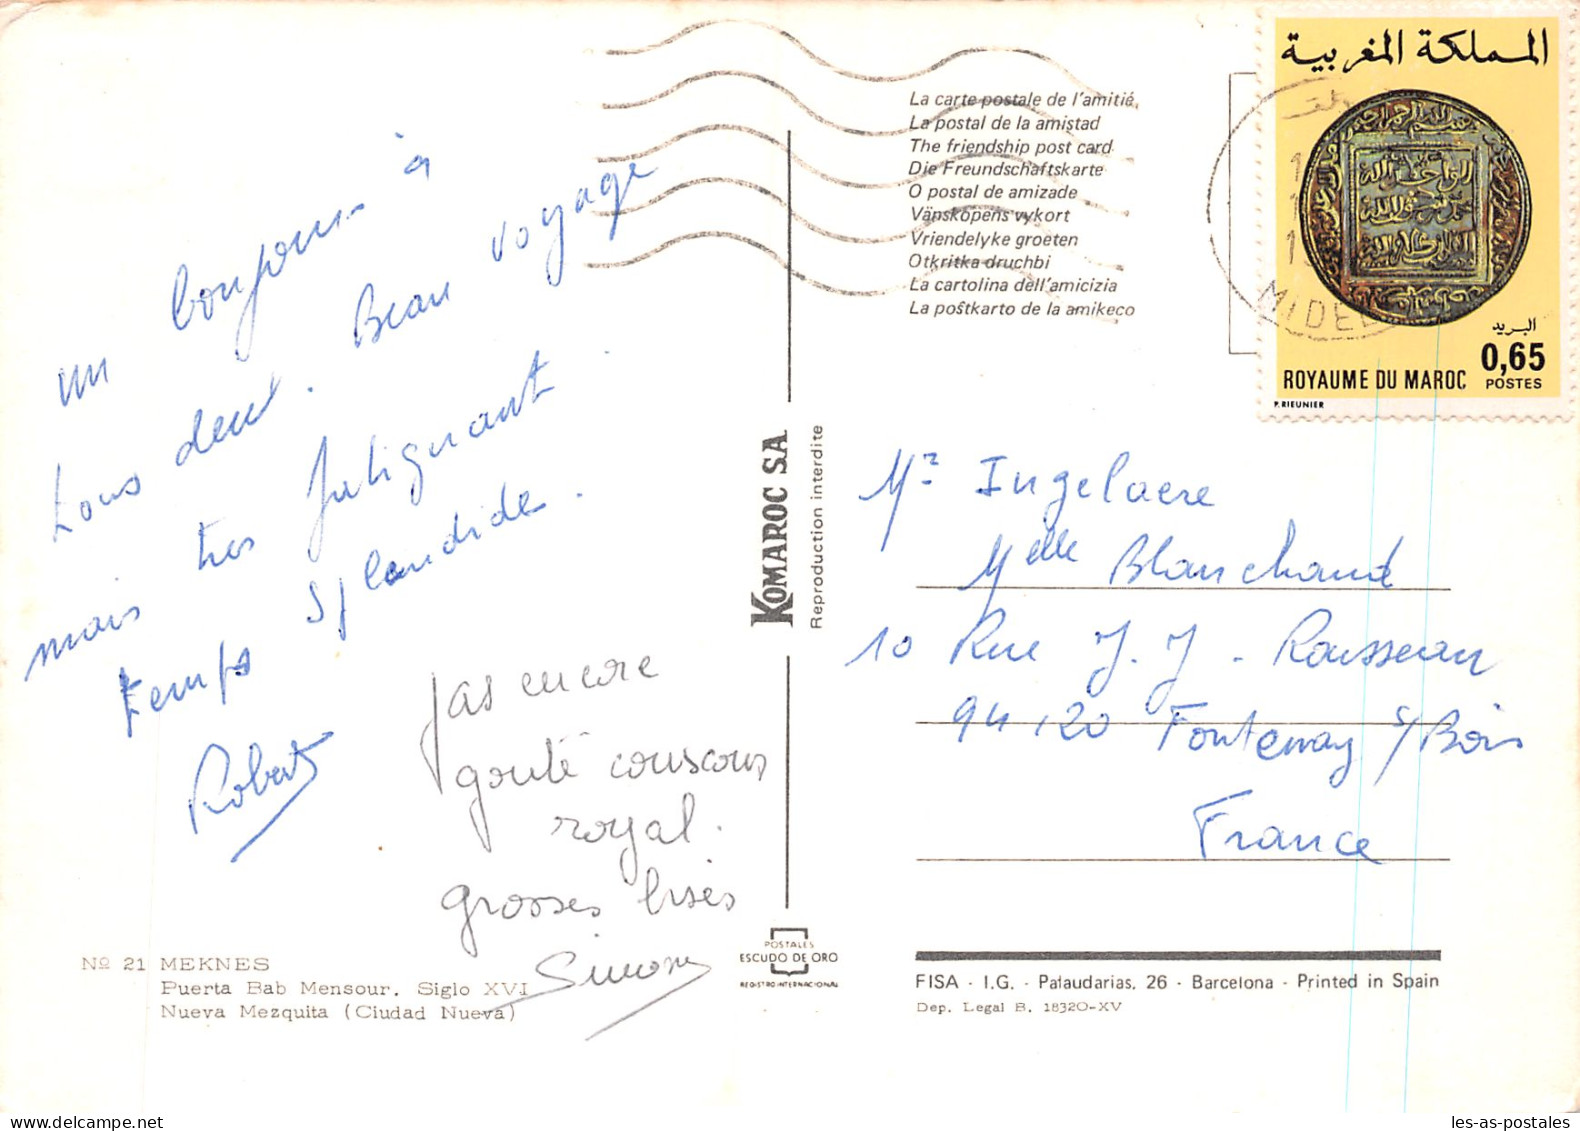 un bonjour à
tous deux. Beau voyage
mais très fatiguant
temps splendide.
Robert
pas encore
gouté couscous
royal.
grosses bises
Simone
Nº 21 MEKNES
Puerta Bab Mensour. Siglo XVI
Nueva Mezquita (Ciudad Nueva)
KOMAROC S.A
Reproduction interdite
POSTALES
ESCUDO DE ORO
REGISTRO INTERNACIONAL
La carte postale de l'amitié
La postal de la amistad
The friendship post card
Die Freundschaftskarte
O postal de amizade
Vänskopens vykort
Vriendelyke groeten
Otkritka druchbi
La cartolina dell'amicizia
La poŝtkarto de la amikeco
المملكة المغربية
البريد
0,65
ROYAUME DU MAROC POSTES
P. RIEUNIER
MIDEL
Mr Ingelaere
Melle Blanchand
10 Rue J. J. Rousseau
94120 Fontenay s/Bois
France
FISA - I.G. - Palaudarias, 26 - Barcelona - Printed in Spain
Dep. Legal B. 18320-XV
les-as-postales